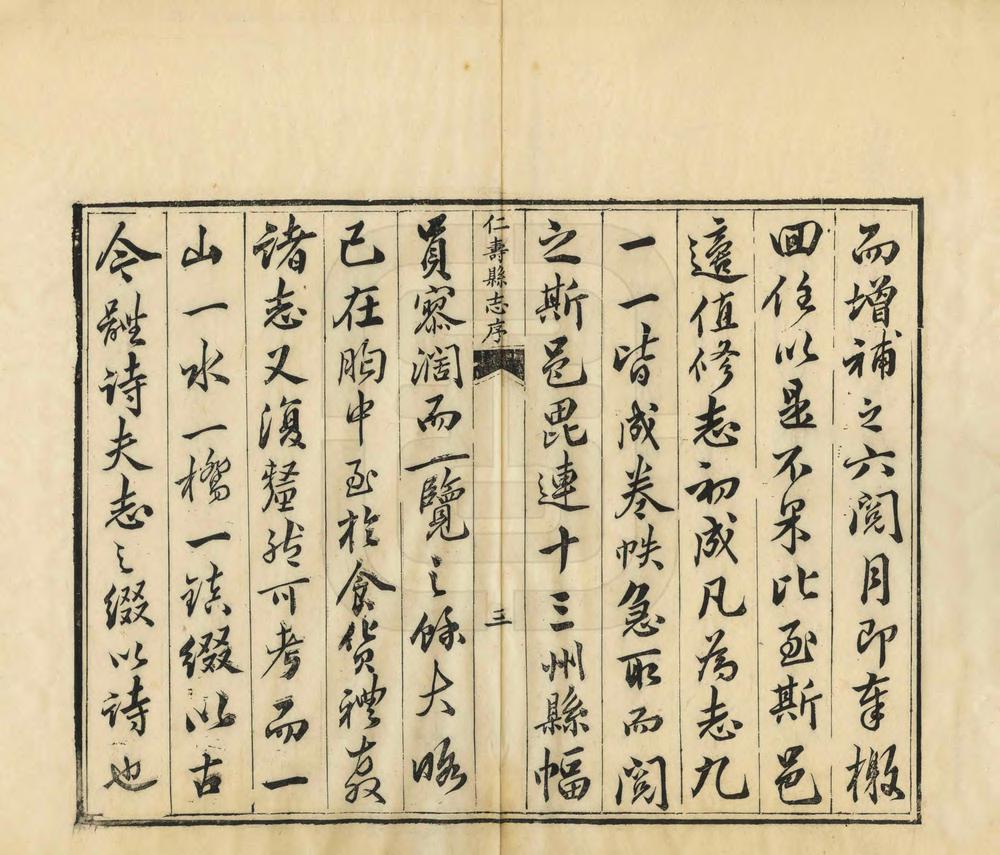 而增補之六閱月即奉檄
回任以是不果比至斯邑
適值修志初成凡為志九
一一皆成卷帙急取而閱
之斯邑毘連十三州縣幅
仁壽縣志序
三
員寥濶而一覽之餘大略
已在胸中至於食貨禮教
諸志又復釐然可考而一
山一水一橋一鎮綴以古
今體詩夫志之綴以詩也